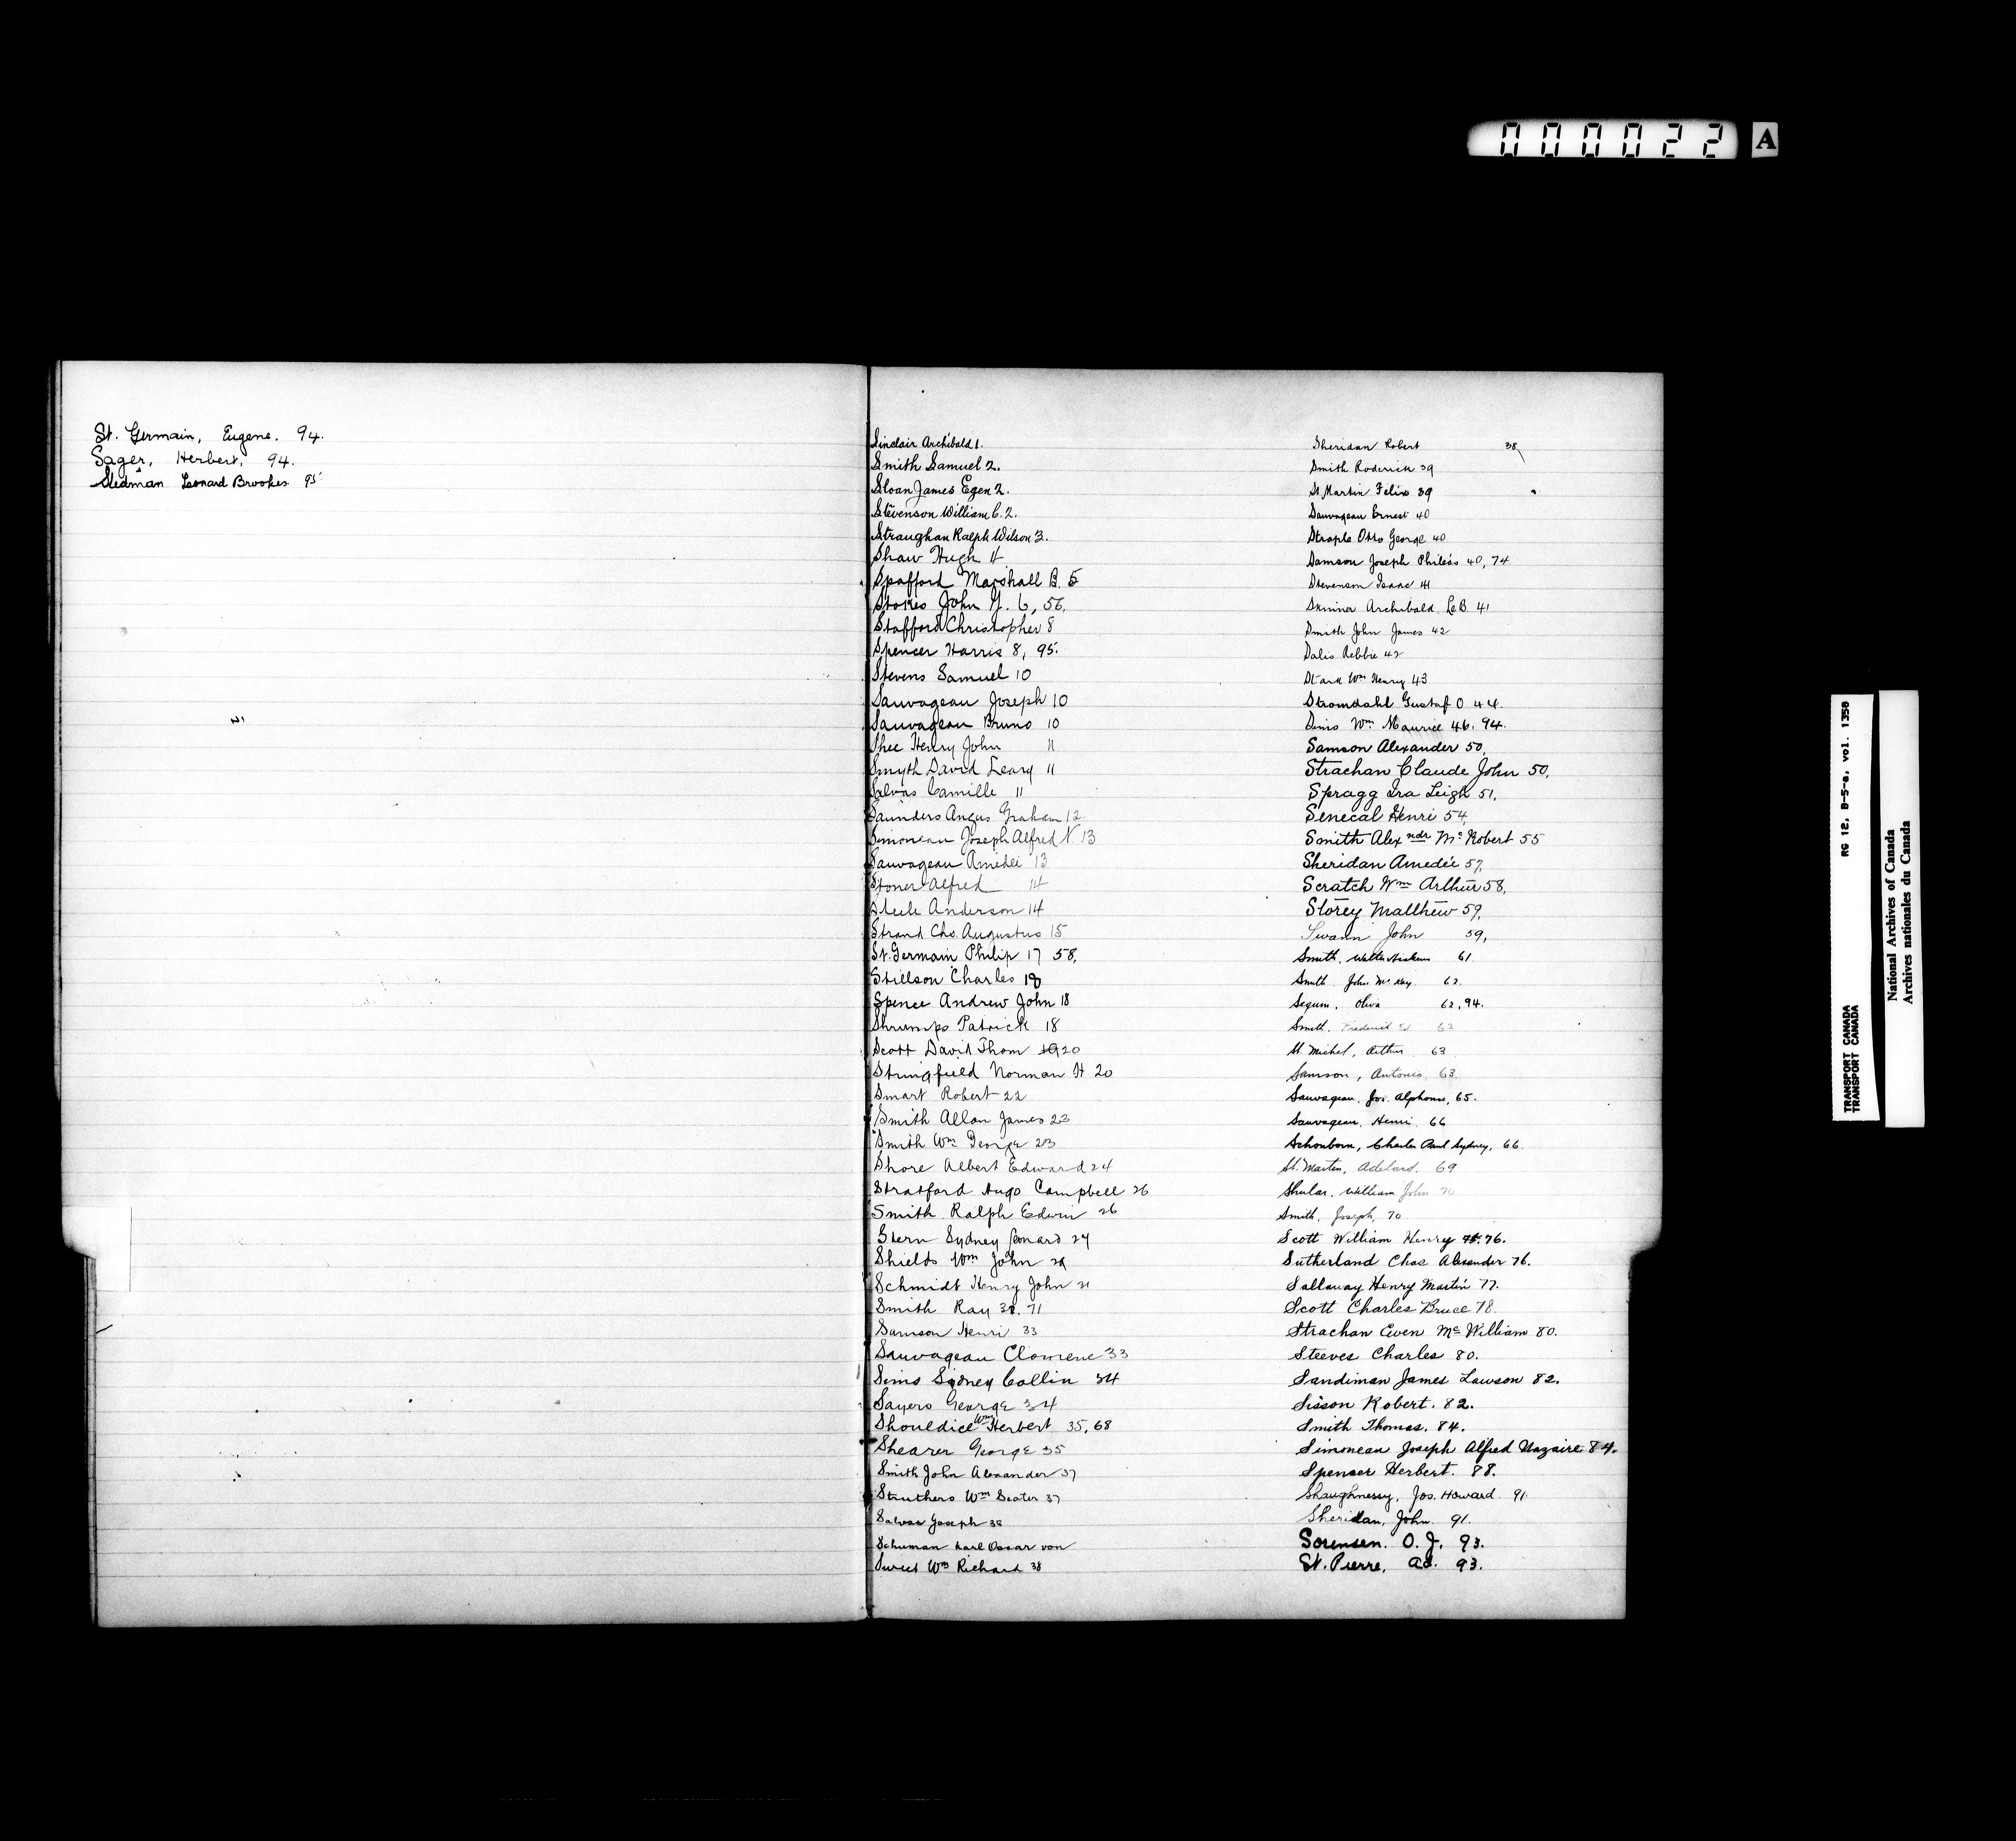 000022 A
St. Germain, Eugene. 94.
Sager, Herbert, 94.
Stedman Leonard Brookes 95
Sinclair Archibald 1.
Smith Samuel 2.
Sloan James Egen 2.
Stevenson William C. 2.
Straughan Ralph Wilson 3.
Shaw Hugh 4
Spafford Marshall B. 5
Stokes John G. 6, 56.
Stafford Christopher 8
Spencer Harris 8, 95.
Stevens Samuel 10
Sauvageau Joseph 10
Sauvageau Bruno 10
Shee Henry John 11
Smyth David Leary 11
Salvas Camille 11
Saunders Angus Graham 12
Simoneau Joseph Alfred N 13
Sauvageau Amédée 13
Stoner Alfred 14
Steele Anderson 14
Strand Chs. Augustus 15
St. Germain Philip 17 58,
Stillson Charles 18
Spence Andrew John 18
Shrumps Patrick 18
Scott David Thom 19 20
Stringfield Norman H 20
Smart Robert 22
Smith Allan James 23
Smith Wm George 23
Shore Albert Edward 24
Stratford Hugo Campbell 26
Smith Ralph Edwin 26
Stern Sydney Leonard 27
Shields Wm John 29
Schmidt Henry John 31
Smith Ray 32, 71
Samson Henri 33
Sauvageau Clomene 33
Sims Sidney Collin 34
Sayers George 34
Shouldice Wm Herbert 35, 68
Shearer George 35
Smith John Alexander 37
Struthers Wm Seater 37
Salvas Joseph 38
Schuman Karl Oscar von
Sweet Wm Richard 38
Sheridan Robert 38
Smith Roderick 39
St Martin Felix 39
Sauvageau Ernest 40
Straple Otto George 40
Samson Joseph Philéas 40, 74
Stevenson Isaac 41
Skinner Archibald LeB. 41
Smith John James 42
Salis Rebbie 42
Stark Wm Henry 43
Stromdahl Gustaf O 44.
Sims Wm Maurice 46, 94.
Samson Alexander 50,
Strachan Claude John 50,
Spragg Ira Leigh 51,
Senecal Henri 54,
Smith Alexndr Mc Robert 55
Sheridan Amedée 57,
Scratch Wm Arthur 58,
Storey Matthew 59,
Swann John 59,
Smith, Walter 61
Smith John McKay 62
Seguin, Oliva 62, 94.
Smith, Frederick 62
St. Michel, Arthur 63
Samson, Antonio 63
Sauvageau, Jos. Alphonse, 65.
Sauvageau, Henri 66
Schonborn, Charles Paul Sydney, 66
St. Martin, Adelard. 69
Shular, William John 70
Smith, Joseph, 70
Scott William Henry 75. 76.
Sutherland Chas Alexander 76.
Sallaway Henry Martin 77.
Scott Charles Bruce 78.
Strachan Ewen Mc William 80.
Steeves Charles 80.
Sandiman James Lawson 82.
Sisson Robert. 82.
Smith Thomas. 84.
Simoneau Joseph Alfred Nazaire 84.
Spencer Herbert. 88.
Shaughnessy, Jos. Howard 91.
Sheridan, John. 91.
Sorensen. O. J. 93.
St. Pierre, Ad. 93.
TRANSPORT CANADA RG 12, B-5-a, vol. 1358
TRANSPORT CANADA
National Archives of Canada
Archives nationales du Canada